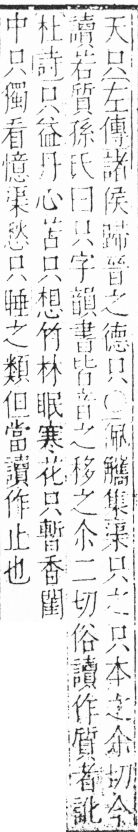 天只左傳諸侯歸晉之德只○佩觿集渠只之只本之尒切今
讀若質孫氏曰只字韻書皆音之移之尒二切俗讀作質者訛
杜詩只益丹心苦只想竹林眠寒花只暫香閨
中只獨看憶渠愁只睡之類但當讀作止也